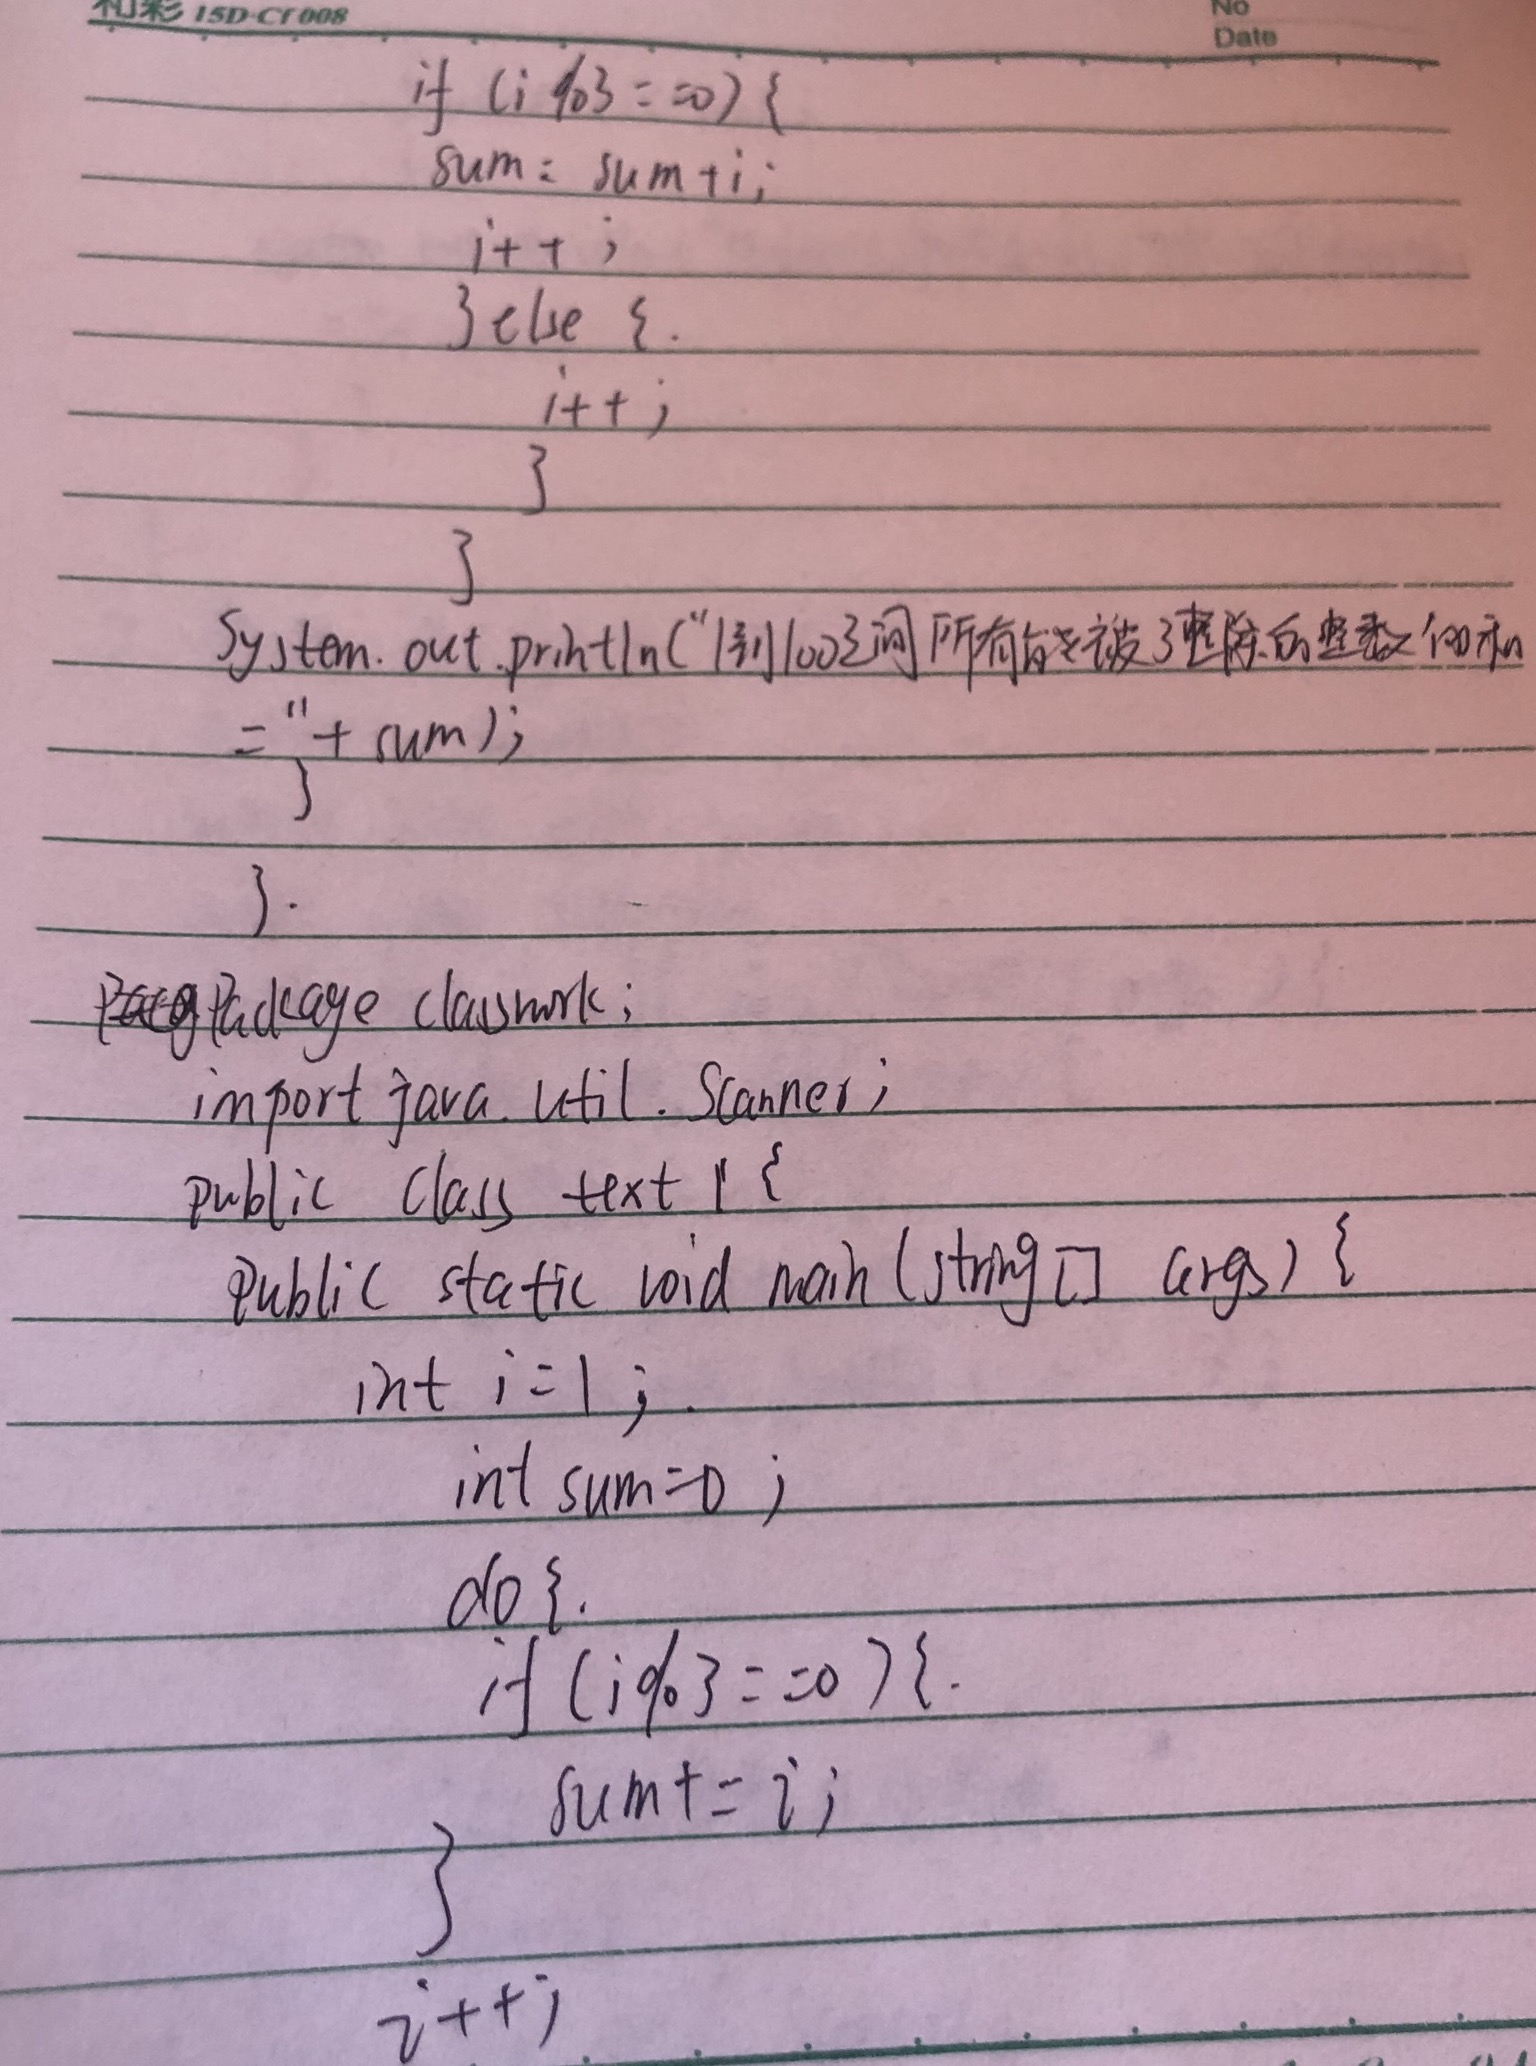 和彩 15D-CY008
No
Date
if (i%3==0){
sum= sum+i;
i++;
}else {.
i++;
}
}
System.out.println("1到100之间所有能被3整除的整数的和
="+sum);
}
}.
Package classwork;
import java.util.Scanner;
public class text1{
public static void main(string[] args){
int i=1;.
int sum=0;
do{.
if(i%3==0){.
sum+=i;
}
i++;